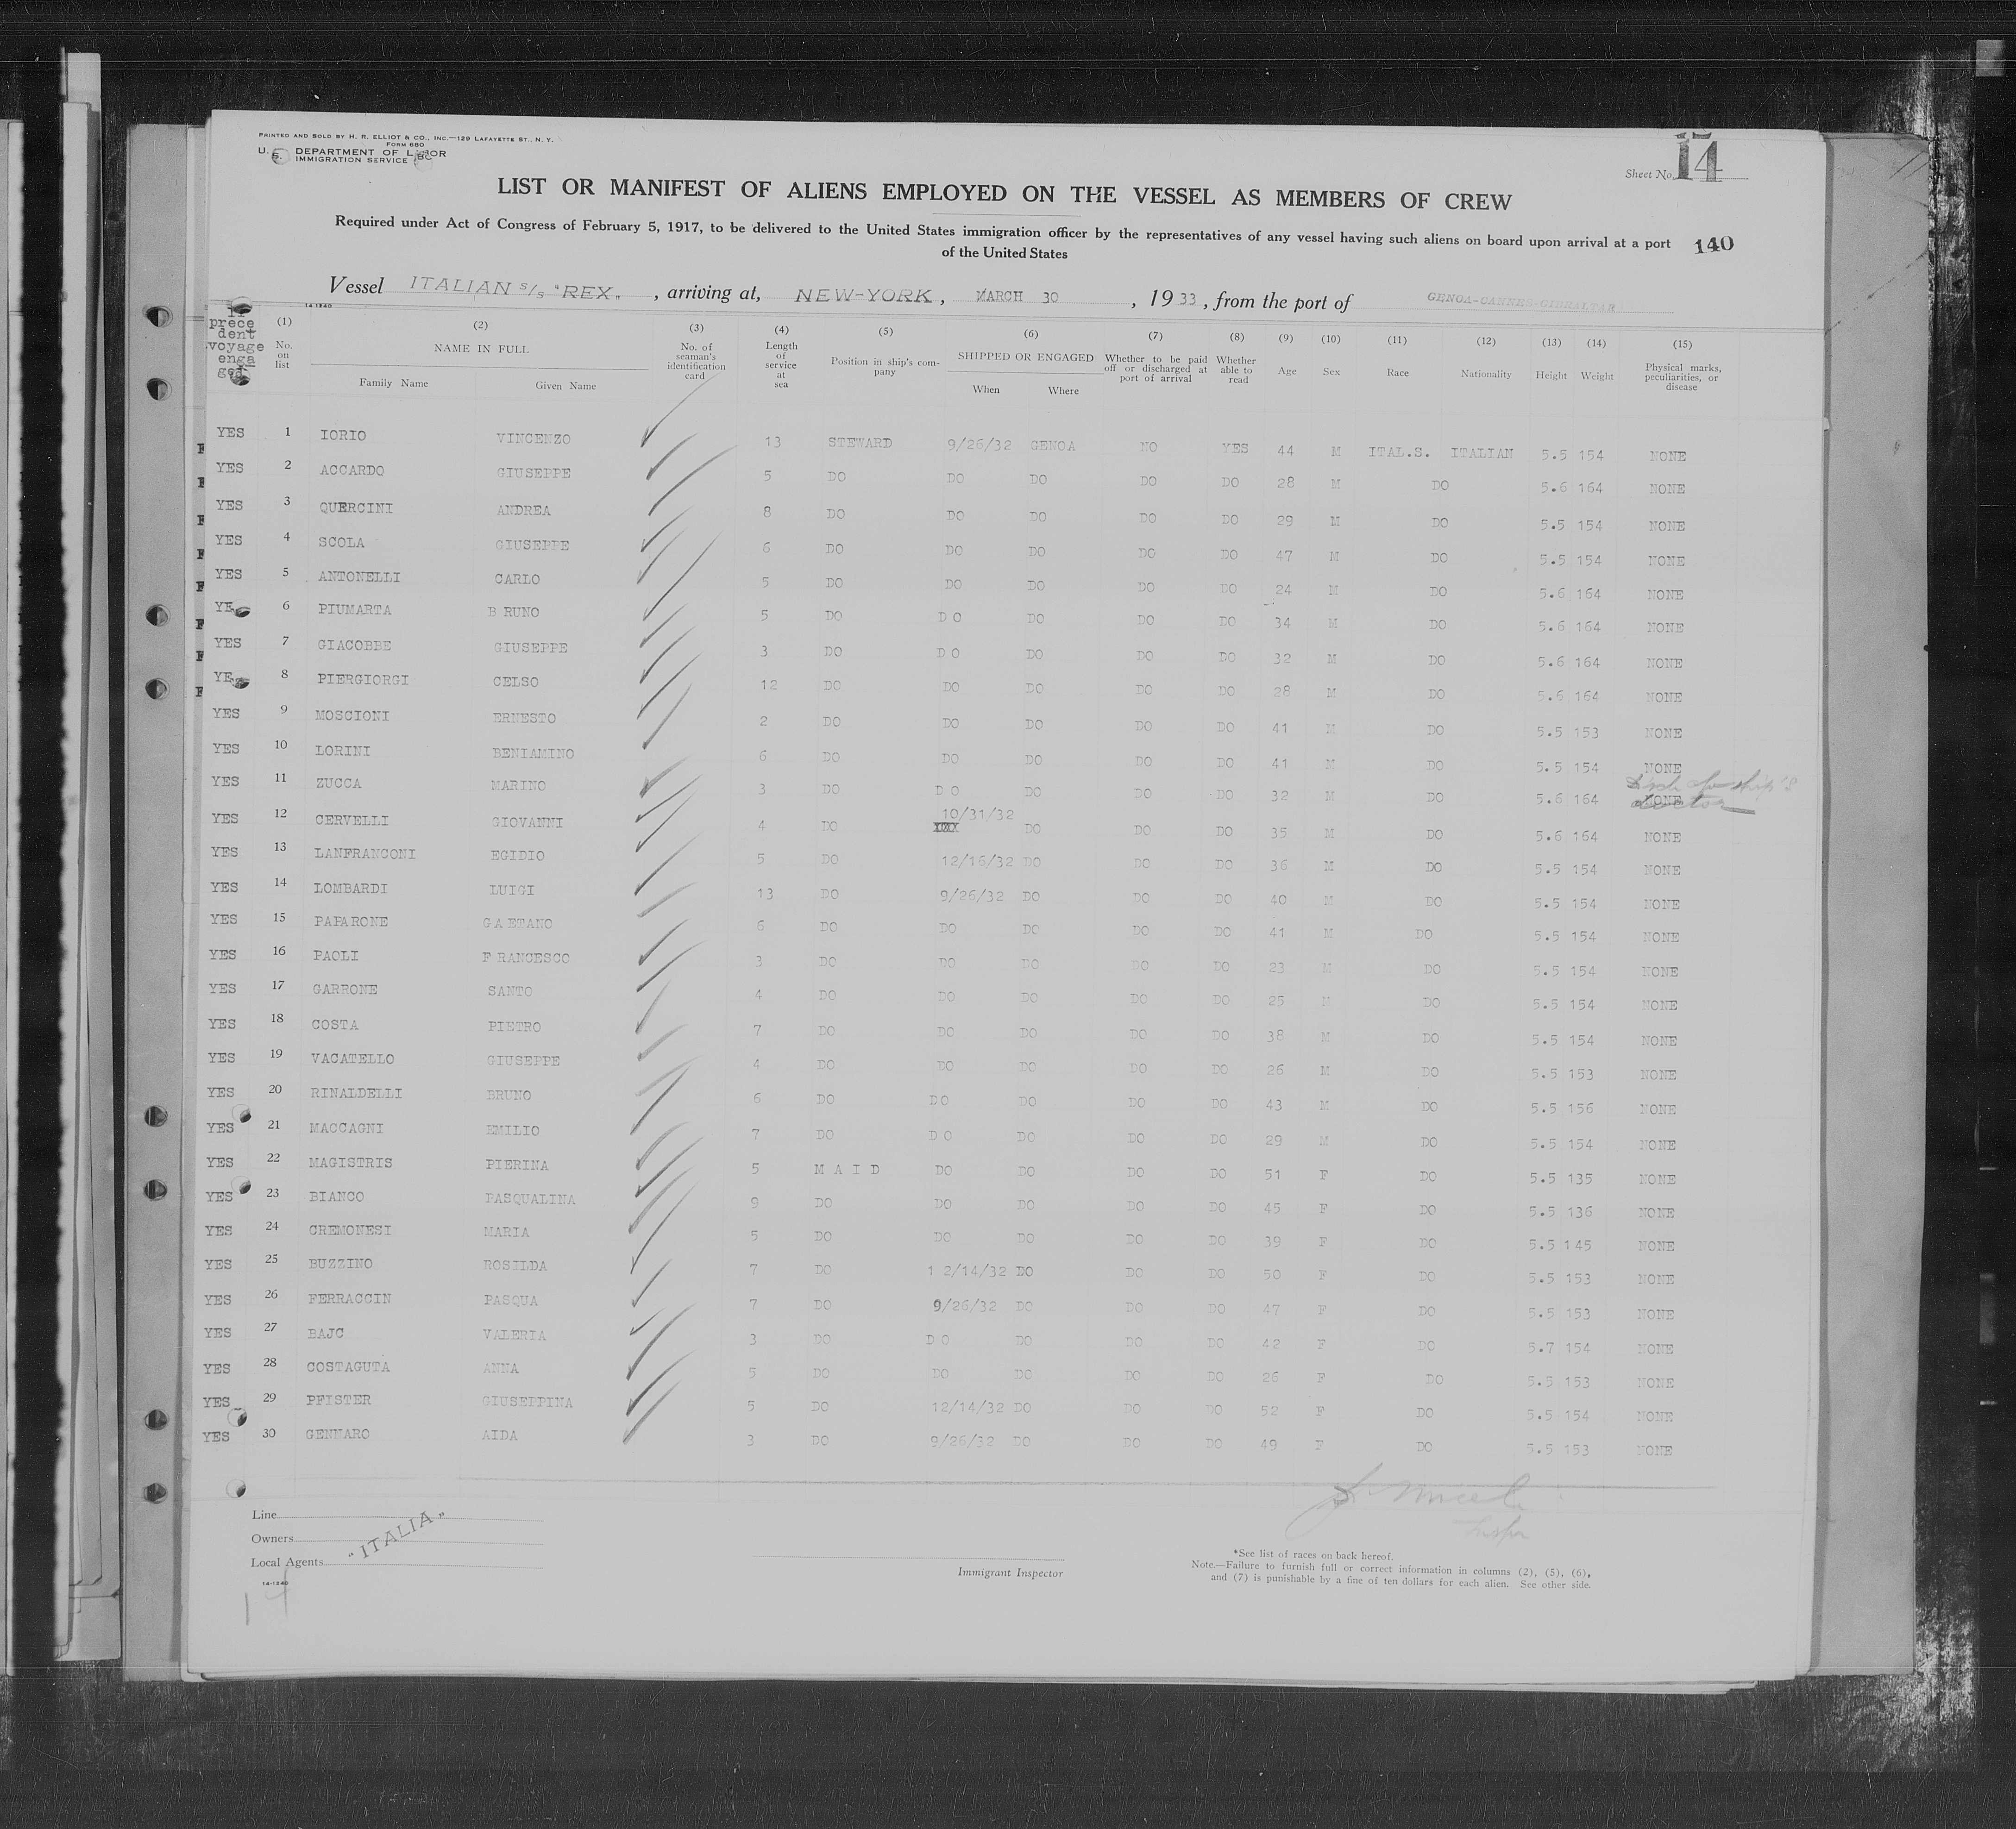 PRINTED AND SOLD BY H. R. ELLIOT & CO., INC.—129 LAFAYETTE ST., N. Y.
FORM 680
U. S. DEPARTMENT OF LABOR
IMMIGRATION SERVICE
Sheet No. 14
LIST OR MANIFEST OF ALIENS EMPLOYED ON THE VESSEL AS MEMBERS OF CREW
Required under Act of Congress of February 5, 1917, to be delivered to the United States immigration officer by the representatives of any vessel having such aliens on board upon arrival at a port
of the United States
140
Vessel ITALIAN s/s "REX", arriving at, NEW-YORK, MARCH 30, 1933, from the port of GENOA-CANNES-GIBRALTAR
14-1240
If precedent voyage engaged
(1) No. on list
(2) NAME IN FULL Family Name Given Name
(3) No. of seaman's identification card
(4) Length of service at sea
(5) Position in ship's company
(6) SHIPPED OR ENGAGED When Where
(7) Whether to be paid off or discharged at port of arrival
(8) Whether able to read
(9) Age
(10) Sex
(11) Race
(12) Nationality
(13) Height
(14) Weight
(15) Physical marks, peculiarities, or disease
YES 1 IORIO VINCENZO 13 STEWARD 9/26/32 GENOA NO YES 44 M ITAL.S. ITALIAN 5.5 154 NONE
YES 2 ACCARDO GIUSEPPE 5 DO DO DO DO DO 28 M DO 5.6 164 NONE
YES 3 QUERCINI ANDREA 8 DO DO DO DO DO 29 M DO 5.5 154 NONE
YES 4 SCOLA GIUSEPPE 6 DO DO DO DO DO 47 M DO 5.5 154 NONE
YES 5 ANTONELLI CARLO 5 DO DO DO DO DO 24 M DO 5.6 164 NONE
YES 6 PIUMARTA B RUNO 5 DO D O DO DO DO 34 M DO 5.6 164 NONE
YES 7 GIACOBBE GIUSEPPE 3 DO D O DO DO DO 32 M DO 5.6 164 NONE
YES 8 PIERGIORGI CELSO 12 DO DO DO DO DO 28 M DO 5.6 164 NONE
YES 9 MOSCIONI ERNESTO 2 DO DO DO DO DO 41 M DO 5.5 153 NONE
YES 10 LORINI BENIAMINO 6 DO DO DO DO DO 41 M DO 5.5 154 NONE
YES 11 ZUCCA MARINO 3 DO D O DO DO DO 32 M DO 5.6 164 NONE
YES 12 CERVELLI GIOVANNI 4 DO 10/31/32 XXX DO DO DO 35 M DO 5.6 164 NONE
YES 13 LANFRANCONI EGIDIO 5 DO 12/16/32 DO DO DO 36 M DO 5.5 154 NONE
YES 14 LOMBARDI LUIGI 13 DO 9/26/32 DO DO DO 40 M DO 5.5 154 NONE
YES 15 PAPARONE GAETANO 6 DO DO DO DO DO 41 M DO 5.5 154 NONE
YES 16 PAOLI F RANCESCO 3 DO DO DO DO DO 23 M DO 5.5 154 NONE
YES 17 GARRONE SANTO 4 DO DO DO DO DO 25 M DO 5.5 154 NONE
YES 18 COSTA PIETRO 7 DO DO DO DO DO 38 M DO 5.5 154 NONE
YES 19 VACATELLO GIUSEPPE 4 DO DO DO DO DO 26 M DO 5.5 153 NONE
YES 20 RINALDELLI BRUNO 6 DO DO DO DO DO 43 M DO 5.5 156 NONE
YES 21 MACCAGNI EMILIO 7 DO D O DO DO DO 29 M DO 5.5 154 NONE
YES 22 MAGISTRIS PIERINA 5 M A I D DO DO DO DO 51 F DO 5.5 135 NONE
YES 23 BIANCO PASQUALINA 9 DO DO DO DO DO 45 F DO 5.5 136 NONE
YES 24 CREMONESI MARIA 5 DO DO DO DO DO 39 F DO 5.5 145 NONE
YES 25 BUZZINO ROSILDA 7 DO 1 2/14/32 DO DO DO 50 F DO 5.5 153 NONE
YES 26 FERRACCIN PASQUA 7 DO 9/26/32 DO DO DO 47 F DO 5.5 153 NONE
YES 27 BAJC VALERIA 3 DO D O DO DO DO 42 F DO 5.7 154 NONE
YES 28 COSTAGUTA ANNA 5 DO DO DO DO DO 26 F DO 5.5 153 NONE
YES 29 PFISTER GIUSEPPINA 5 DO 12/14/32 DO DO DO 52 F DO 5.5 154 NONE
YES 30 GENNARO AIDA 3 DO 9/26/32 DO DO DO 49 F DO 5.5 153 NONE
Line
Owners "ITALIA"
Local Agents
14-1240
14
Immigrant Inspector
*See list of races on back hereof.
Note.—Failure to furnish full or correct information in columns (2), (5), (6),
and (7) is punishable by a fine of ten dollars for each alien. See other side.